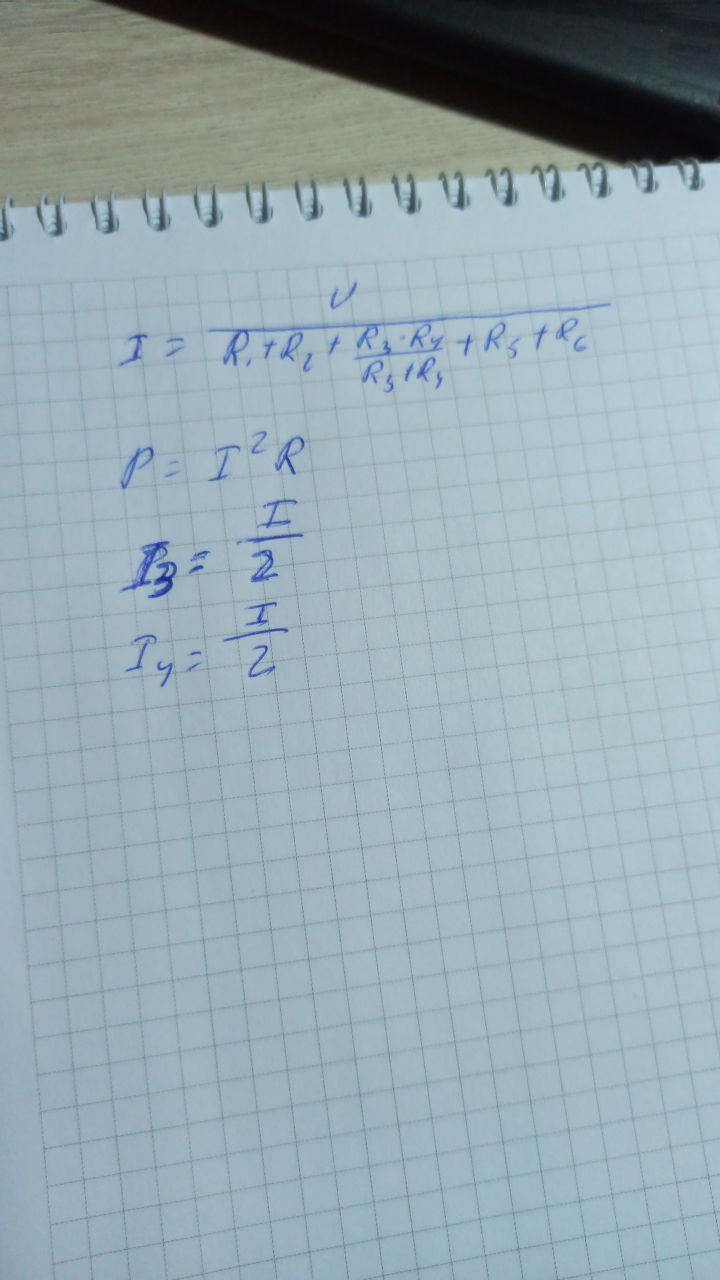 I = U / (R₁ + R₂ + (R₃ · R₄) / (R₃ + R₄) + R₅ + R₆)
P = I² R
I₃ = I / 2
I₄ = I / 2